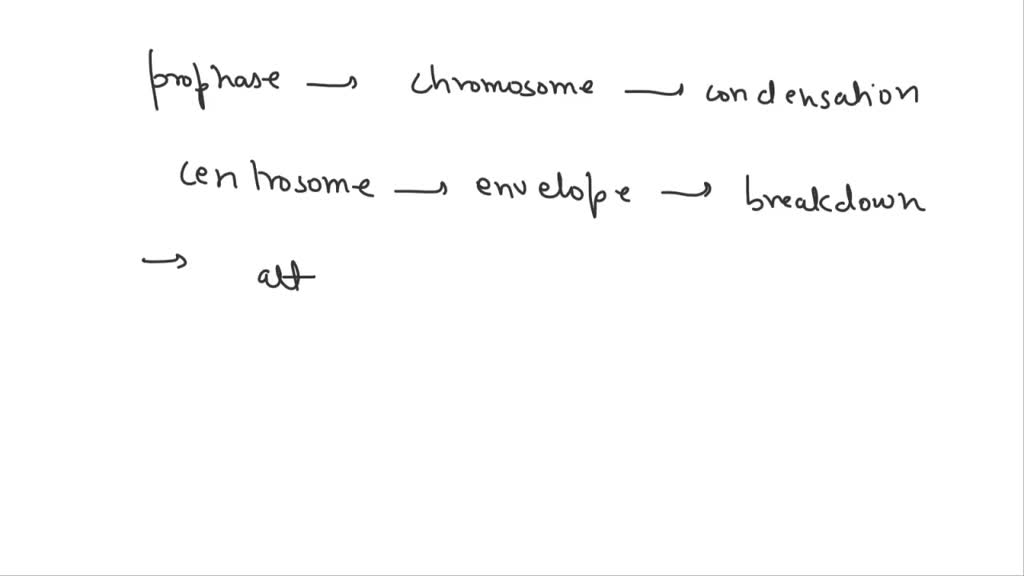 prophase → chromosome → condensation
centrosome → envelope → breakdown
→ att